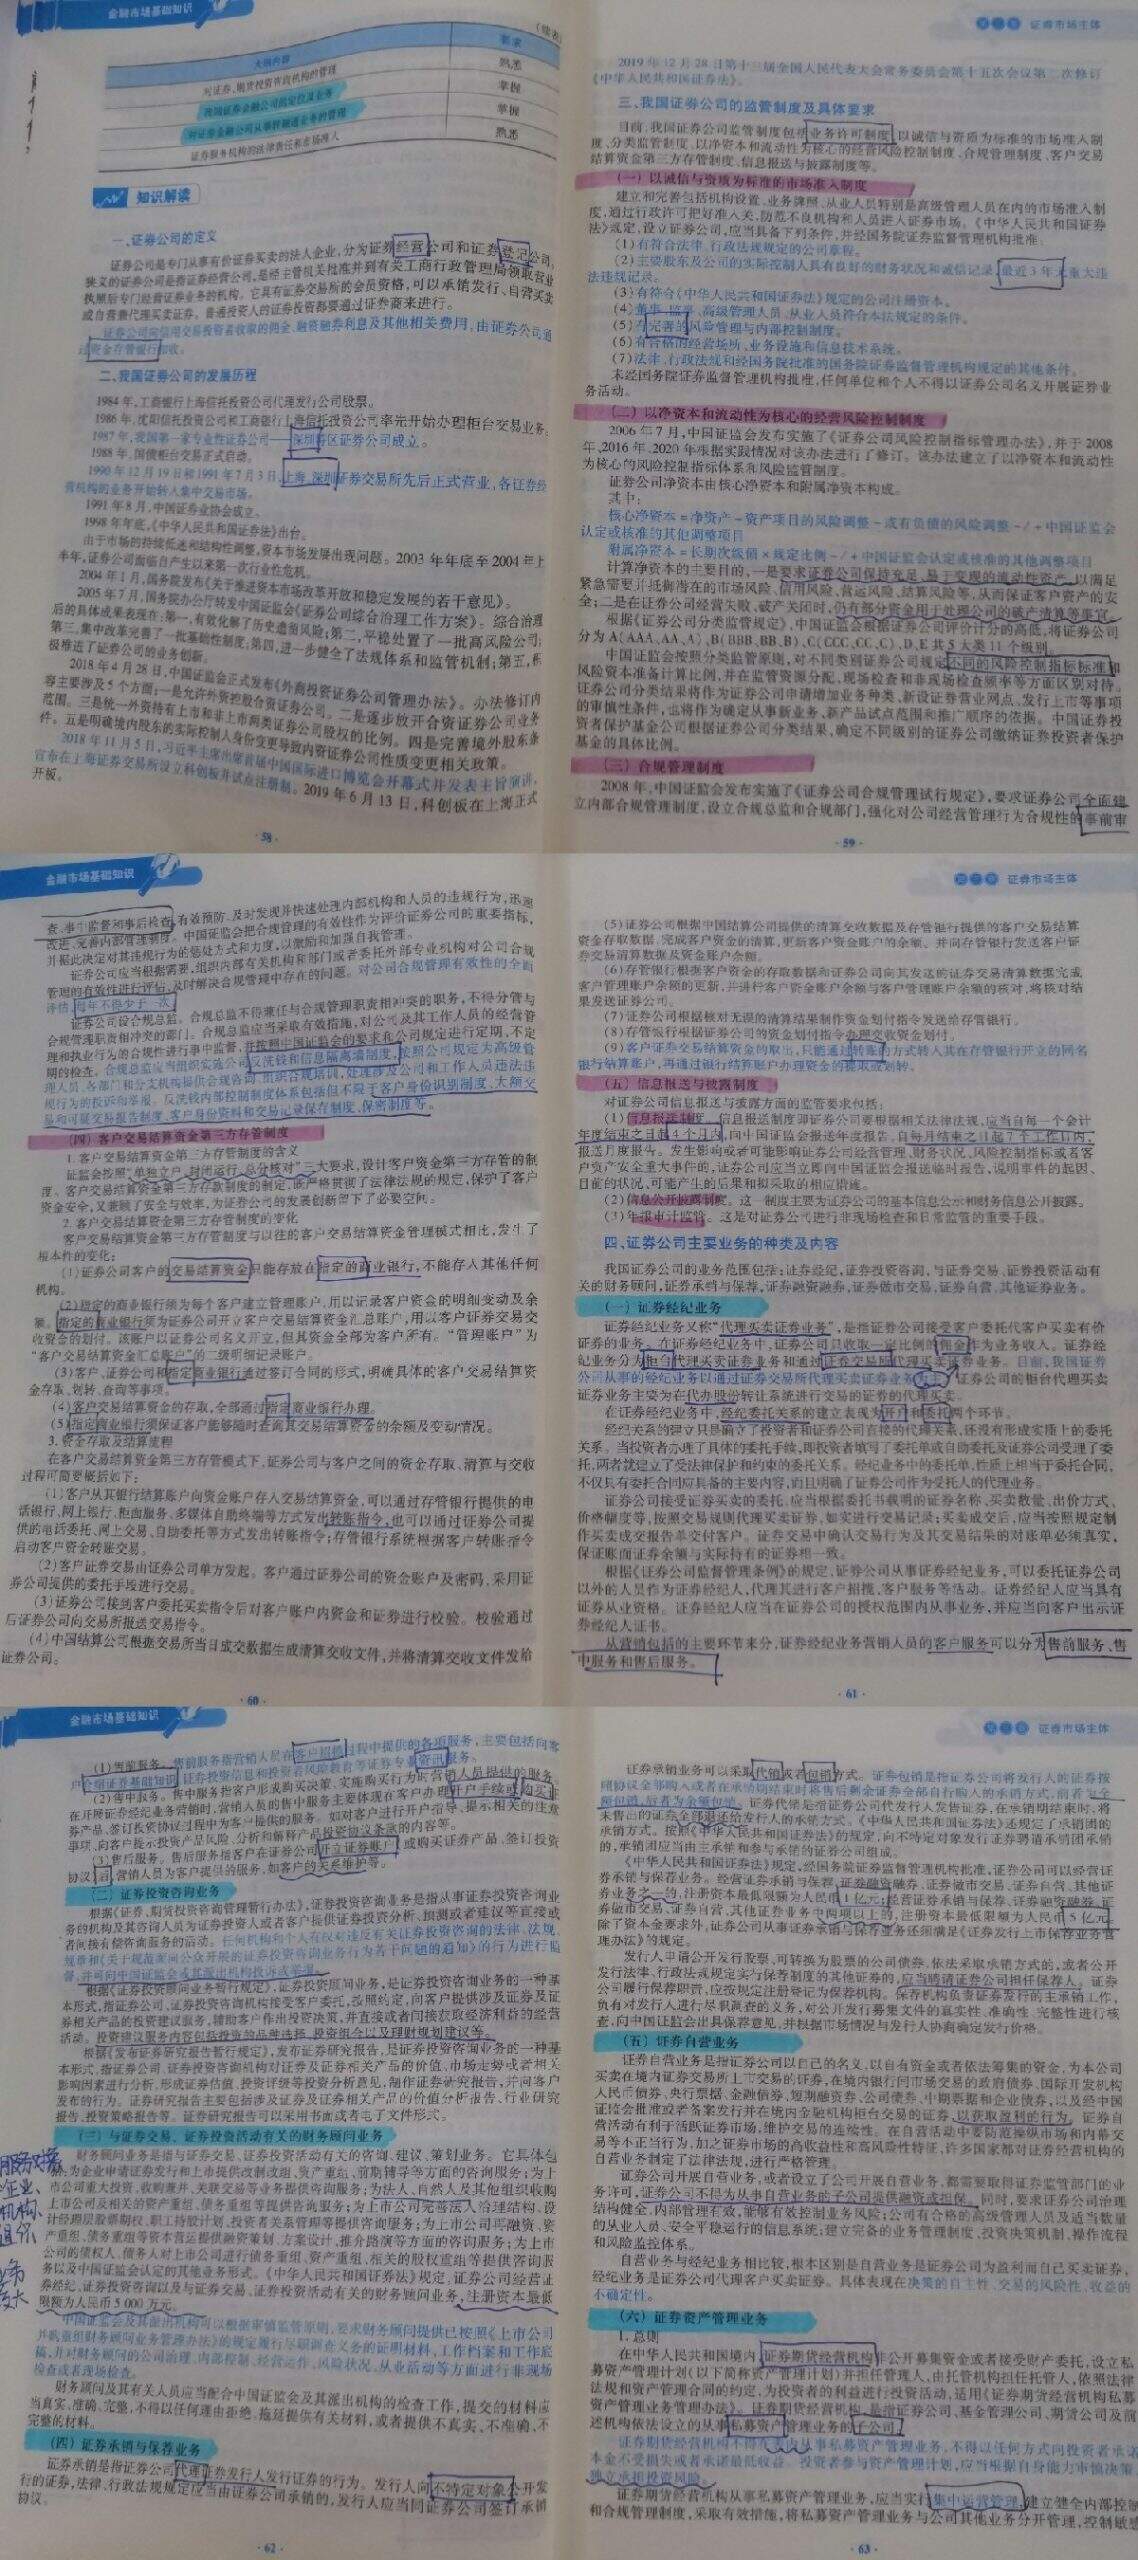 金融市场基础知识
(续表)
大纲内容 要求
对证券、期货投资咨询机构的管理 熟悉
我国证券金融公司的定位及业务 掌握
对证券金融公司从事转融通业务的管理 掌握
证券服务机构的法律责任和市场准入 熟悉
知识解读
一、证券公司的定义
证券公司是专门从事有价证券买卖的法人企业,分为证券经营公司和证券登记公司。
狭义的证券公司是指证券经营公司,是经主管机关批准并到有关工商行政管理局领取营业
执照后专门经营证券业务的机构。它具有证券交易所的会员资格,可以承销发行、自营买卖
或自营兼代理买卖证券。普通投资人的证券投资都要通过证券商来进行。
证券公司向信用交易投资者收取的佣金、融资融券利息及其他相关费用,由证券公司通
过资金存管银行扣收。
二、我国证券公司的发展历程
1984年,工商银行上海信托投资公司代理发行公司股票。
1986年,沈阳信托投资公司和工商银行上海信托投资公司率先开始办理柜台交易业务。
1987年,我国第一家专业性证券公司——深圳特区证券公司成立。
1988年,国债柜台交易正式启动。
1990年12月19日和1991年7月3日,上海、深圳证券交易所先后正式营业,各证券经
营机构的业务开始转入集中交易市场。
1991年8月,中国证券业协会成立。
1998年年底,《中华人民共和国证券法》出台。
由于市场的持续低迷和结构性调整,资本市场发展出现问题。2003年年底至2004年上
半年,证券公司面临自产生以来第一次行业性危机。
2004年1月,国务院发布《关于推进资本市场改革开放和稳定发展的若干意见》。
2005年7月,国务院办公厅转发中国证监会《证券公司综合治理工作方案》。综合治理
后的具体成果表现在:第一,有效化解了历史遗留风险;第二,平稳处置了一批高风险公司;
第三,集中改革完善了一批基础性制度;第四,进一步健全了法规体系和监管机制;第五,积
极推进了证券公司的业务创新。
2018年4月28日,中国证监会正式发布《外商投资证券公司管理办法》。办法修订内
容主要涉及5个方面:一是允许外资控股合资证券公司。二是逐步放开合资证券公司业务
范围。三是统一外资持有上市和非上市两类证券公司股权的比例。四是完善境外股东条
件。五是明确境内股东的实际控制人身份变更导致内资证券公司性质变更相关政策。
2018年11月5日,习近平主席出席首届中国国际进口博览会开幕式并发表主旨演讲,
宣布在上海证券交易所设立科创板并试点注册制。2019年6月13日,科创板在上海正式
开板。
·58·
证券市场主体
2019年12月28日第十三届全国人民代表大会常务委员会第十五次会议第二次修订
《中华人民共和国证券法》。
三、我国证券公司的监管制度及具体要求
目前,我国证券公司监管制度包括业务许可制度,以诚信与资质为标准的市场准入制
度、分类监管制度、以净资本和流动性为核心的经营风险控制制度、合规管理制度、客户交易
结算资金第三方存管制度、信息报送与披露制度等。
(一)以诚信与资质为标准的市场准入制度
建立和完善包括机构设置、业务牌照、从业人员特别是高级管理人员在内的市场准入制
度,通过行政许可把好准入关,防范不良机构和人员进入证券市场。《中华人民共和国证券
法》规定,设立证券公司,应当具备下列条件,并经国务院证券监督管理机构批准:
(1)有符合法律、行政法规规定的公司章程。
(2)主要股东及公司的实际控制人具有良好的财务状况和诚信记录,最近3年无重大违
法违规记录。
(3)有符合《中华人民共和国证券法》规定的公司注册资本。
(4)董事、监事、高级管理人员、从业人员符合本法规定的条件。
(5)有完善的风险管理与内部控制制度。
(6)有合格的经营场所、业务设施和信息技术系统。
(7)法律、行政法规和经国务院批准的国务院证券监督管理机构规定的其他条件。
未经国务院证券监督管理机构批准,任何单位和个人不得以证券公司名义开展证券业
务活动。
(二)以净资本和流动性为核心的经营风险控制制度
2006年7月,中国证监会发布实施了《证券公司风险控制指标管理办法》,并于2008
年、2016年、2020年根据实践情况对该办法进行了修订。该办法建立了以净资本和流动性
为核心的风险控制指标体系和风险监管制度。
证券公司净资本由核心净资本和附属净资本构成。
其中:
核心净资本=净资产-资产项目的风险调整-或有负债的风险调整-/+中国证监会
认定或核准的其他调整项目
附属净资本=长期次级债×规定比例-/+中国证监会认定或核准的其他调整项目
计算净资本的主要目的,一是要求证券公司保持充足、易于变现的流动性资产,以满足
紧急需要并抵御潜在的市场风险、信用风险、营运风险、结算风险等,从而保证客户资产的安
全;二是在证券公司经营失败、破产关闭时,仍有部分资金用于处理公司的破产清算等事宜。
根据《证券公司分类监管规定》,中国证监会根据证券公司评价计分的高低,将证券公司
分为A(AAA、AA、A)、B(BBB、BB、B)、C(CCC、CC、C)、D、E共5大类11个级别。
中国证监会按照分类监管原则,对不同类别证券公司规定不同的风险控制指标标准和
风险资本准备计算比例,并在监管资源分配、现场检查和非现场检查频率等方面区别对待。
证券公司分类结果将作为证券公司申请增加业务种类、新设证券营业网点、发行上市等事项
的审慎性条件,也将作为确定从事新业务、新产品试点范围和推广顺序的依据。中国证券投
资者保护基金公司根据证券公司分类结果,确定不同级别的证券公司缴纳证券投资者保护
基金的具体比例。
(三)合规管理制度
2008年,中国证监会发布实施了《证券公司合规管理试行规定》,要求证券公司全面建
立内部合规管理制度,设立合规总监和合规部门,强化对公司经营管理行为合规性的事前审
·59·
金融市场基础知识
查、事中监督和事后检查,有效预防、及时发现并快速处理内部机构和人员的违规行为,迅速
改进、完善内部管理制度。中国证监会把合规管理的有效性作为评价证券公司的重要指标,
并据此决定对其违规行为的惩处方式和力度,以激励和加强自我管理。
证券公司应当根据需要,组织内部有关机构和部门或者委托外部专业机构对公司合规
管理的有效性进行评估,及时解决合规管理中存在的问题。对公司合规管理有效性的全面
评估,每年不得少于一次。
证券公司设合规总监。合规总监不得兼任与合规管理职责相冲突的职务,不得分管与
合规管理职责相冲突的部门。合规总监应当采取有效措施,对公司及其工作人员的经营管
理和执业行为的合规性进行事中监督,并按照中国证监会的要求和公司规定进行定期、不定
期的检查。合规总监应当组织实施公司反洗钱和信息隔离墙制度,按照公司规定为高级管
理人员、各部门和分支机构提供合规咨询、组织合规培训,处理涉及公司和工作人员违法违
规行为的投诉和举报。反洗钱内部控制制度体系包括但不限于客户身份识别制度、大额交
易和可疑交易报告制度、客户身份资料和交易记录保存制度、保密制度等。
(四)客户交易结算资金第三方存管制度
1.客户交易结算资金第三方存管制度的含义
证监会按照“单独立户、封闭运行、总分核对”三大要求,设计客户资金第三方存管的制
度。客户交易结算资金第三方存款制度的制定,既严格贯彻了法律法规的规定,保护了客户
资金安全,又兼顾了安全与效率,为证券公司的发展创新留下了必要空间。
2.客户交易结算资金第三方存管制度的变化
客户交易结算资金第三方存管制度与以往的客户交易结算资金管理模式相比,发生了
根本性的变化:
(1)证券公司客户的交易结算资金只能存放在指定的商业银行,不能存入其他任何
机构。
(2)指定的商业银行须为每个客户建立管理账户,用以记录客户资金的明细变动及余
额。指定的商业银行须为证券公司开立客户交易结算资金汇总账户,用以客户证券交易交
收资金的划付。该账户以证券公司名义开立,但其资金全部为客户所有。“管理账户”为
“客户交易结算资金汇总账户”的二级明细记录账户。
(3)客户、证券公司和指定商业银行通过签订合同的形式,明确具体的客户交易结算资
金存取、划转、查询等事项。
(4)客户交易结算资金的存取,全部通过指定商业银行办理。
(5)指定商业银行须保证客户能够随时查询其交易结算资金的余额及变动情况。
3.资金存取及结算流程
在客户交易结算资金第三方存管模式下,证券公司与客户之间的资金存取、清算与交收
过程可简要概括如下:
(1)客户从其银行结算账户向资金账户存入交易结算资金,可以通过存管银行提供的电
话银行、网上银行、柜面服务、多媒体自助终端等方式发出转账指令,也可以通过证券公司提
供的电话委托、网上交易、自助委托等方式发出转账指令;存管银行系统根据客户转账指令
启动客户资金转账交易。
(2)客户证券交易由证券公司单方发起。客户通过证券公司的资金账户及密码,采用证
券公司提供的委托手段进行交易。
(3)证券公司接到客户委托买卖指令后对客户账户内资金和证券进行校验。校验通过
后证券公司向交易所报送交易指令。
(4)中国结算公司根据交易所当日成交数据生成清算交收文件,并将清算交收文件发给
证券公司。
·60·
证券市场主体
(5)证券公司根据中国结算公司提供的清算交收数据及存管银行提供的客户交易结算
资金存取数据,完成客户资金的清算,更新客户资金账户的余额。并向存管银行发送客户证
券交易清算数据及资金账户余额。
(6)存管银行根据客户资金的存取数据和证券公司向其发送的证券交易清算数据完成
客户管理账户余额的更新,并进行客户资金账户余额与客户管理账户余额的核对,将核对结
果发送证券公司。
(7)证券公司根据核对无误的清算结果制作资金划付指令发送给存管银行。
(8)存管银行根据证券公司的资金划付指令办理交收资金划付。
(9)客户证券交易结算资金的取出,只能通过转账的方式转入其在存管银行开立的同名
银行结算账户,再通过银行结算账户办理资金的提取或划转。
(五)信息报送与披露制度
对证券公司信息报送与披露方面的监管要求包括:
(1)信息报送制度。信息报送制度即证券公司要根据相关法律法规,应当自每一个会计
年度结束之日起4个月内,向中国证监会报送年度报告,自每月结束之日起7个工作日内,
报送月度报告。发生影响或者可能影响证券公司经营管理、财务状况、风险控制指标或者客
户资产安全重大事件的,证券公司应当立即向中国证监会报送临时报告,说明事件的起因、
目前的状况、可能产生的后果和拟采取的相应措施。
(2)信息公开披露制度。这一制度主要为证券公司的基本信息公示和财务信息公开披露。
(3)年报审计监管。这是对证券公司进行非现场检查和日常监管的重要手段。
四、证券公司主要业务的种类及内容
我国证券公司的业务范围包括:证券经纪,证券投资咨询,与证券交易、证券投资活动有
关的财务顾问,证券承销与保荐,证券融资融券,证券做市交易,证券自营,其他证券业务。
(一)证券经纪业务
证券经纪业务又称“代理买卖证券业务”,是指证券公司接受客户委托代客户买卖有价
证券的业务。在证券经纪业务中,证券公司只收取一定比例的佣金作为业务收入。证券经
纪业务分为柜台代理买卖证券业务和通过证券交易所代理买卖证券业务。目前,我国证券
公司从事的经纪业务以通过证券交易所代理买卖证券业务为主。证券公司的柜台代理买卖
证券业务主要为在代办股份转让系统进行交易的证券的代理买卖。
在证券经纪业务中,经纪委托关系的建立表现为开户和委托两个环节。
经纪关系的建立只是确立了投资者和证券公司直接的代理关系,还没有形成实质上的委托
关系。当投资者办理了具体的委托手续,即投资者填写了委托单或自助委托及证券公司受理了委
托,两者就建立了受法律保护和约束的委托关系。经纪业务中的委托单,性质上相当于委托合同,
不仅具有委托合同应具备的主要内容,而且明确了证券公司作为受托人的代理业务。
证券公司接受证券买卖的委托,应当根据委托书载明的证券名称、买卖数量、出价方式、
价格幅度等,按照交易规则代理买卖证券,如实进行交易记录;买卖成交后,应当按照规定制
作买卖成交报告单交付客户。证券交易中确认交易行为及其交易结果的对账单必须真实,
保证账面证券余额与实际持有的证券相一致。
根据《证券公司监督管理条例》的规定,证券公司从事证券经纪业务,可以委托证券公司
以外的人员作为证券经纪人,代理其进行客户招揽、客户服务等活动。证券经纪人应当具有
证券从业资格。证券经纪人应当在证券公司的授权范围内从事业务,并应当向客户出示证
券经纪人证书。
从营销包括的主要环节来分,证券经纪业务营销人员的客户服务可以分为售前服务、售
中服务和售后服务。
·61·
金融市场基础知识
(1)售前服务。售前服务指营销人员在客户招揽过程中提供的各项服务,主要包括向客
户介绍证券基础知识、证券投资信息和投资者风险教育等证券专业资讯服务。
(2)售中服务。售中服务指客户形成购买决策、实施购买行为时营销人员提供的服务。
在开展证券经纪业务营销时,营销人员的售中服务主要体现在客户办理开户手续或购买证
券产品、签订投资协议过程中为客户提供的服务。如对客户进行开户指导、提示相关的注意
事项、向客户提示投资产品风险、分析和解释产品投资协议条款的内容等。
(3)售后服务。售后服务指客户在证券公司开立证券账户或购买证券产品、签订投资
协议后,营销人员为客户提供的服务,如客户的关系维护等。
(二)证券投资咨询业务
根据《证券、期货投资咨询管理暂行办法》,证券投资咨询业务是指从事证券投资咨询业
务的机构及其咨询人员为证券投资人或者客户提供证券投资分析、预测或者建议等直接或
者间接有偿咨询服务的活动。任何机构和个人有权对违反有关证券投资咨询的法律、法规、
规章和《关于规范面向公众开展的证券投资咨询业务行为若干问题的通知》的行为进行监
督,并可向中国证监会或其派出机构投诉或举报。
根据《证券投资顾问业务暂行规定》,证券投资顾问业务,是证券投资咨询业务的一种基
本形式,指证券公司、证券投资咨询机构接受客户委托,按照约定,向客户提供涉及证券及证
券相关产品的投资建议服务,辅助客户作出投资决策,并直接或者间接获取经济利益的经营
活动。投资建议服务内容包括投资的品种选择、投资组合以及理财规划建议等。
根据《发布证券研究报告暂行规定》,发布证券研究报告,是证券投资咨询业务的一种基
本形式,指证券公司、证券投资咨询机构对证券及证券相关产品的价值、市场走势或者相关
影响因素进行分析,形成证券估值、投资评级等投资分析意见,制作证券研究报告,并向客户
发布的行为。证券研究报告主要包括涉及证券及证券相关产品的价值分析报告、行业研究
报告、投资策略报告等。证券研究报告可以采用书面或者电子文件形式。
(三)与证券交易、证券投资活动有关的财务顾问业务
财务顾问业务是指与证券交易、证券投资活动有关的咨询、建议、策划业务。它具体包
括:为企业申请证券发行和上市提供改制改组、资产重组、前期辅导等方面的咨询服务;为上
市公司重大投资、收购兼并、关联交易等业务提供咨询服务;为法人、自然人及其他组织收购
上市公司及相关的资产重组、债务重组等提供咨询服务;为上市公司完善法人治理结构、设
计经理层股票期权、职工持股计划、投资者关系管理等提供咨询服务;为上市公司再融资、资
产重组、债务重组等资本营运提供融资策划、方案设计、推介路演等方面的咨询服务;为上市
公司的债权人、债务人对上市公司进行债务重组、资产重组、相关的股权重组等提供咨询服
务以及中国证监会认定的其他业务形式。《中华人民共和国证券法》规定,证券公司经营证
券经纪、证券投资咨询以及与证券交易、证券投资活动有关的财务顾问业务,注册资本最低
限额为人民币5 000万元。
中国证监会及其派出机构可以根据审慎监管原则,要求财务顾问提供已按照《上市公司
并购重组财务顾问业务管理办法》的规定履行尽职调查义务的证明材料、工作档案和工作底
稿,并对财务顾问的公司治理、内部控制、经营运作、风险状况、从业活动等方面进行非现场
检查或者现场检查。
财务顾问及其有关人员应当配合中国证监会及其派出机构的检查工作,提交的材料应
当真实、准确、完整,不得以任何理由拒绝、拖延提供有关材料,或者提供不真实、不准确、不
完整的材料。
(四)证券承销与保荐业务
证券承销是指证券公司代理证券发行人发行证券的行为。发行人向不特定对象公开发
行的证券,法律、行政法规规定应当由证券公司承销的,发行人应当同证券公司签订承销
协议。
·62·
证券市场主体
证券承销业务可以采取代销或者包销方式。证券包销是指证券公司将发行人的证券按
照协议全部购入或者在承销期结束时将售后剩余证券全部自行购入的承销方式,前者为全
额包销,后者为余额包销。证券代销是指证券公司代发行人发售证券,在承销期结束时,将
未售出的证券全部退还给发行人的承销方式。《中华人民共和国证券法》还规定了承销团的
承销方式。按照《中华人民共和国证券法》的规定,向不特定对象发行证券聘请承销团承销
的,承销团应当由主承销和参与承销的证券公司组成。
《中华人民共和国证券法》规定,经国务院证券监督管理机构批准,证券公司可以经营证
券承销与保荐业务。经营证券承销与保荐、证券融资融券、证券做市交易、证券自营、其他证
券业务之一的,注册资本最低限额为人民币1亿元;经营证券承销与保荐、证券融资融券、证
券做市交易、证券自营、其他证券业务中两项以上的,注册资本最低限额为人民币5亿元。
除了资本金要求外,证券公司从事证券承销与保荐业务还须满足《证券发行上市保荐业务管
理办法》的规定。
发行人申请公开发行股票、可转换为股票的公司债券,依法采取承销方式的,或者公开
发行法律、行政法规规定实行保荐制度的其他证券的,应当聘请证券公司担任保荐人。证券
公司履行保荐职责,应按规定注册登记为保荐机构。保荐机构负责证券发行的主承销工作,
负有对发行人进行尽职调查的义务,对公开发行募集文件的真实性、准确性、完整性进行核
查,向中国证监会出具保荐意见,并根据市场情况与发行人协商确定发行价格。
(五)证券自营业务
证券自营业务是指证券公司以自己的名义,以自有资金或者依法筹集的资金,为本公司
买卖在境内证券交易所上市交易的证券,在境内银行间市场交易的政府债券、国际开发机构
人民币债券、央行票据、金融债券、短期融资券、公司债券、中期票据和企业债券,以及经中国
证监会批准或者备案发行并在境内金融机构柜台交易的证券,以获取盈利的行为。证券自
营活动有利于活跃证券市场,维护交易的连续性。在自营活动中要防范操纵市场和内幕交
易等不正当行为,加之证券市场的高收益性和高风险性特征,许多国家都对证券经营机构的
自营业务制定了法律法规,进行严格管理。
证券公司开展自营业务,或者设立子公司开展自营业务,都需要取得证券监管部门的业
务许可,证券公司不得为从事自营业务的子公司提供融资或担保。同时,要求证券公司治理
结构健全、内部管理有效,能够有效控制业务风险;公司有合格的高级管理人员及适当数量
的从业人员、安全平稳运行的信息系统;建立完备的业务管理制度、投资决策机制、操作流程
和风险监控体系。
自营业务与经纪业务相比较,根本区别是自营业务是证券公司为盈利而自己买卖证券,
经纪业务是证券公司代理客户买卖证券。具体表现在决策的自主性、交易的风险性、收益的
不确定性。
(六)证券资产管理业务
1.总则
在中华人民共和国境内,证券期货经营机构非公开募集资金或者接受财产委托,设立私
募资产管理计划(以下简称资产管理计划)并担任管理人,由托管机构担任托管人,依照法律
法规和资产管理合同的约定,为投资者的利益进行投资活动,适用《证券期货经营机构私募
资产管理业务管理办法》。证券期货经营机构,是指证券公司、基金管理公司、期货公司及前
述机构依法设立的从事私募资产管理业务的子公司。
证券期货经营机构不得在表内从事私募资产管理业务,不得以任何方式向投资者承诺
本金不受损失或者承诺最低收益。投资者参与资产管理计划,应当根据自身能力审慎决策,
独立承担投资风险。
证券期货经营机构从事私募资产管理业务,应当实行集中运营管理,建立健全内部控制
和合规管理制度,采取有效措施,将私募资产管理业务与公司其他业务分开管理,控制敏感
·63·